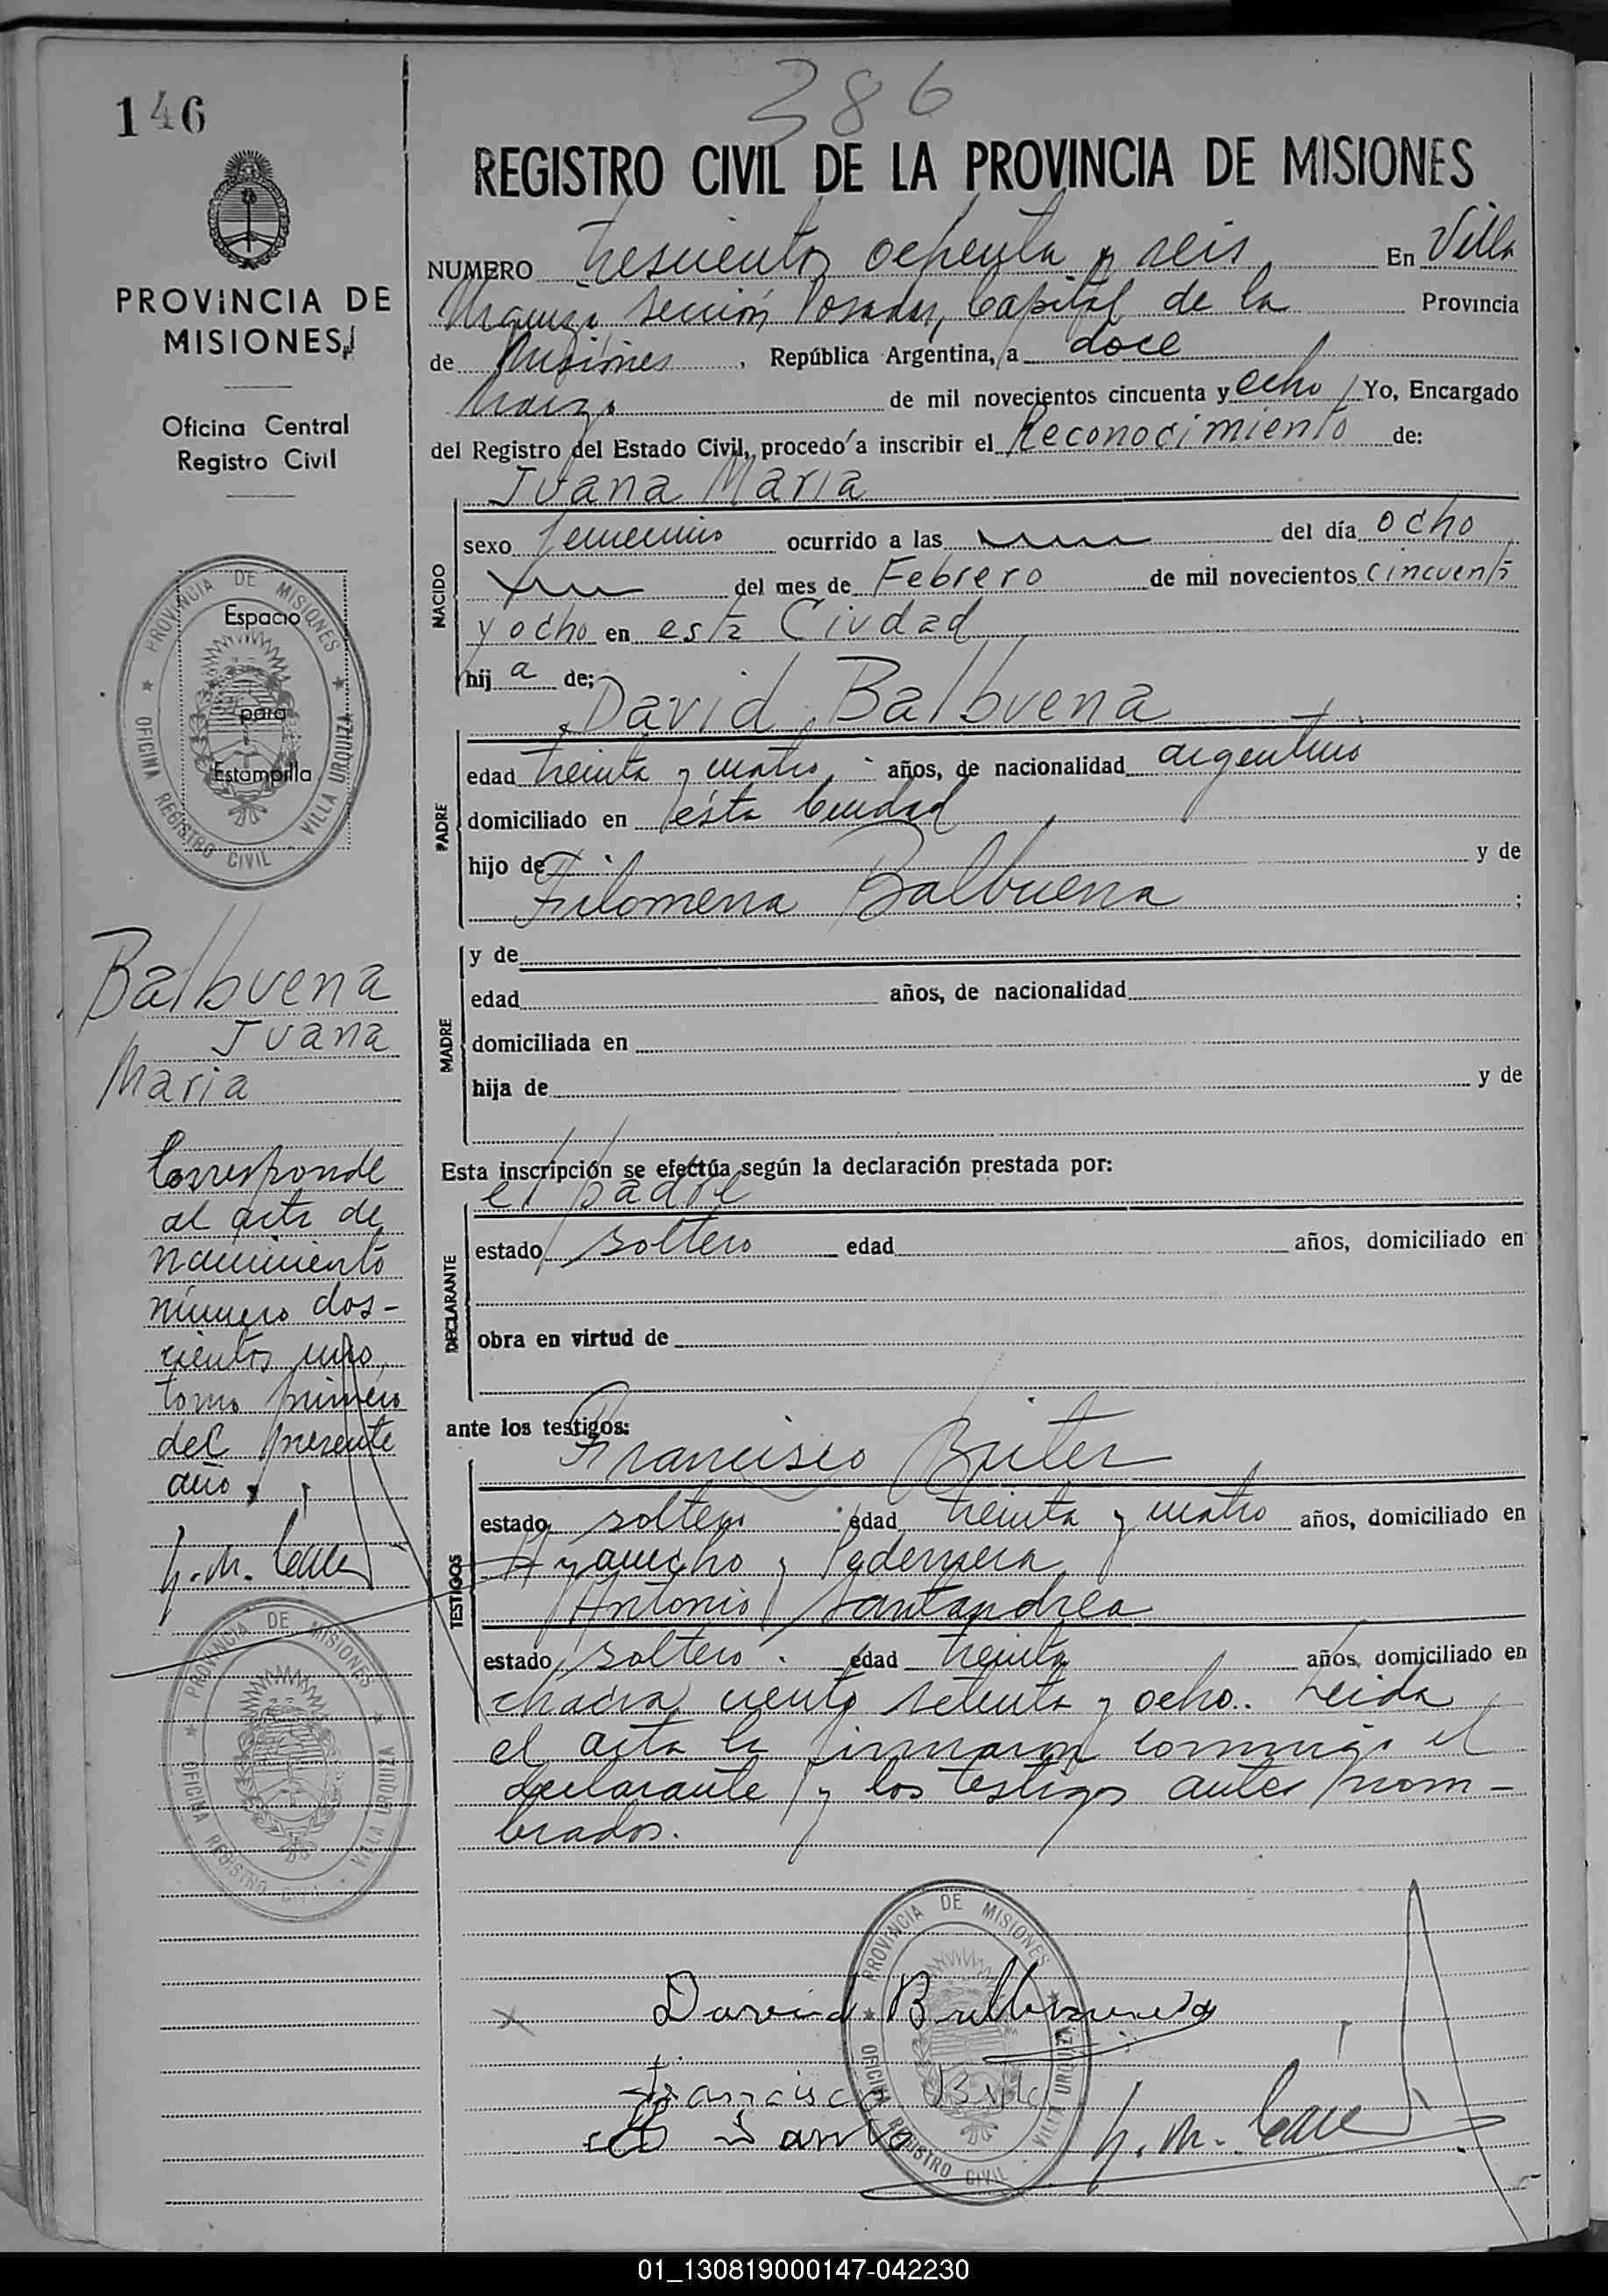 146
386
PROVINCIA DE
MISIONES
Oficina Central
Registro Civil
REGISTRO CIVIL DE LA PROVINCIA DE MISIONES
NUMERO trescientos ochenta y seis En Villa
Urquiza sección Posadas, Capital de la Provincia
de Misiones, República Argentina, a doce
Marzo de mil novecientos cincuenta y ocho Yo, Encargado
del Registro del Estado Civil, procedo a inscribir el Reconocimiento de:
Juana Maria
NACIDO
sexo femenino ocurrido a las del día ocho
del mes de Febrero de mil novecientos cincuenta
y ocho en esta Ciudad
hij a de;
David Balbuena
PADRE
edad treinta y cuatro años, de nacionalidad argentino
domiciliado en ésta Ciudad
hijo de y de
Filomena Balbuena ;
MADRE
y de
edad años, de nacionalidad
domiciliada en
hija de y de
Esta inscripción se efectúa según la declaración prestada por:
el padre
DECLARANTE
estado soltero edad años, domiciliado en
obra en virtud de
ante los testigos:
Francisco Briter
TESTIGOS
estado soltero edad treinta y cuatro años, domiciliado en
Ayacucho y Pedernera
Antonio Santandrea
estado soltero edad treinta años, domiciliado en
chacra ciento setenta y ocho. Leida
el acta la firmaron conmigo el
declarante y los testigos antes nom-
brados.
Espacio
para
Estampilla
PROVINCIA DE MISIONES
OFICINA REGISTRO CIVIL · VILLA URQUIZA
Balbuena
Juana
Maria
Corresponde
al acta de
nacimiento
número dos-
cientos uno
tomo primero
del presente
año
PROVINCIA DE MISIONES
OFICINA REGISTRO CIVIL · VILLA URQUIZA
David Balbuena
Francisco
PROVINCIA DE MISIONES
OFICINA REGISTRO CIVIL · VILLA URQUIZA
01_130819000147-042230